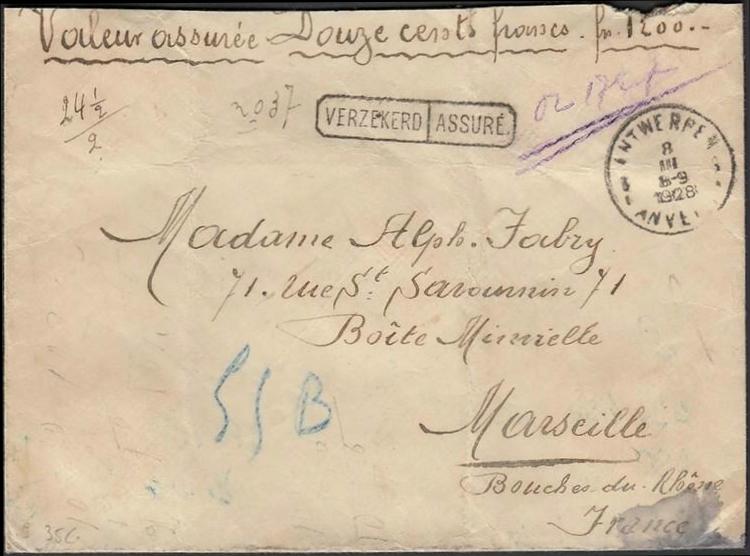 Valeur assurée Douze cents francs. fr. 1200.-
24 1/2
2
2037
VERZEKERD ASSURÉ
or
ANTWERPEN
8
III
8-9
1928
ANVE
Madame Alph. Fabry
71. rue St. Savournin 71
Boîte Mimielle
Marseille
Bouches-du-Rhône
France
55B
35C.